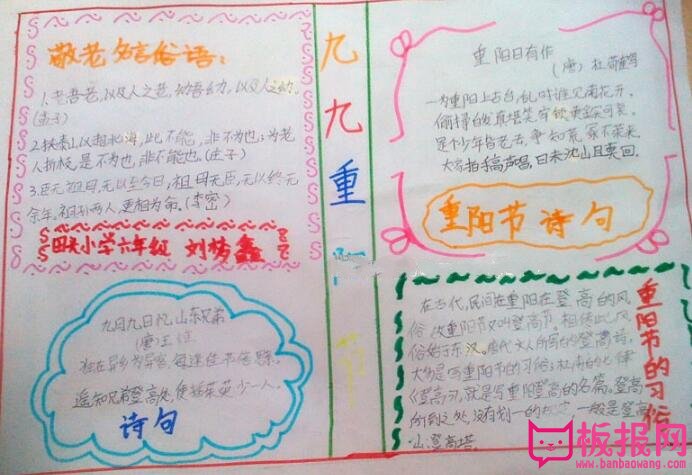 敬老名言俗语:
1.老吾老,以及人之老,幼吾幼,以及人之幼。
(孟子)
2.挟泰山以超北海,此不能,非不为也;为老
人折枝,是不为也,非不能也。(孟子)
3.臣无祖母,无以至今日,祖母无臣,无以终
余年。祖孙两人,更相为命。(李密)
田关小学六年级 刘梦鑫
九九重阳节
重阳日有作
(唐)杜荀鹤
一为重阳上古台,乱时谁见菊花开。
偷
是个少年皆老去,争知荒冢不荣来。
大家拍手高声唱,日未沈山且莫回。
重阳节诗句
九月九日忆山东兄弟
(唐)王维
独在异乡为异客,每逢佳节倍思亲。
遥知兄弟登高处,便插茱萸少一人。
诗句
重阳节的习俗
在古代,民间在重阳在登高的风
俗,故重阳节又叫登高节。相传此风
俗始于东汉。唐代文人所写的登高诗
大多是写重阳节的习俗;杜甫的七律
《登高》,就是写重阳登高的名篇。登高
所到之处,没有划一的规定,一般是登高
山、登高塔。
板报网
www.banbaowang.com